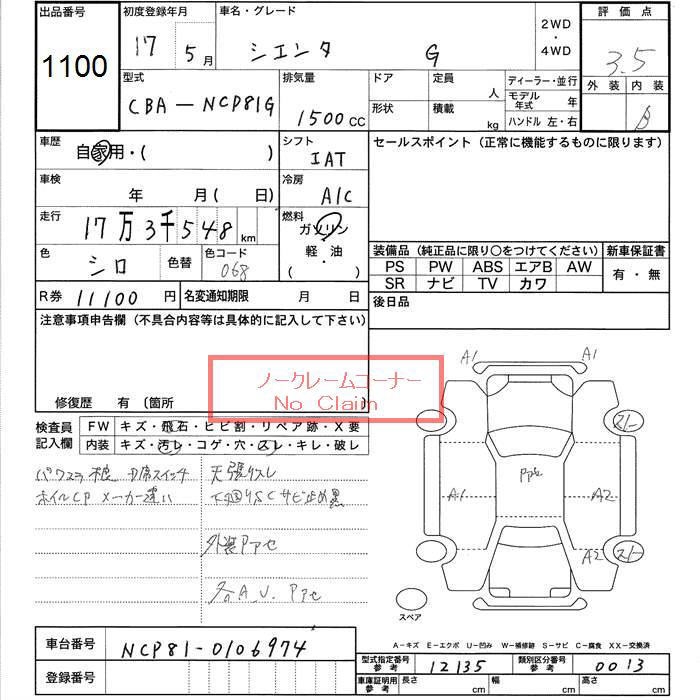 出品番号 初度登録年月 車名・グレード 2WD・4WD 評価点
1100 17 5月 シエンタ G 3.5
外装 内装
B
型式 排気量 ドア 定員 人 ディーラー・並行
CBA-NCP81G 1500cc 形状 積載 kg モデル年式 年
ハンドル 左・右
車歴 自家用・( ) シフト IAT セールスポイント(正常に機能するものに限ります)
車検 年 月( 日) 冷房 A/C
走行 17万3千548km 燃料 ガソリン
軽・油
( ・ )
色 シロ 色替 色コード 068
装備品(純正品に限り〇をつけてください) 新車保証書
PS PW ABS エアB AW 有・無
SR ナビ TV カワ
R券 11100円 名変通知期限 月 日 後日品
注意事項申告欄(不具合内容等は具体的に記入して下さい)
ノークレームコーナー
No Claim
修復歴 有 (箇所
検査員記入欄 FW キズ・飛石・ヒビ割・リペア跡・X要
内装 キズ・汚レ・コゲ・穴・スレ・キレ・破レ
天張りスレ
ホイルCP メーカー違い
下回りSCサビ止め黒
外装Pアセ
各A.U. Pアセ
A1 A1
A1 A2
A2
スペア
A-キズ E-エクボ U-凹み W-補修跡 S-サビ C-腐食 XX-交換済
車台番号 NCP81-0106974
型式指定番号 参考 12135 類別区分番号 参考 0013
登録番号
車庫証明用 参考 長さ cm 幅 cm 高さ cm